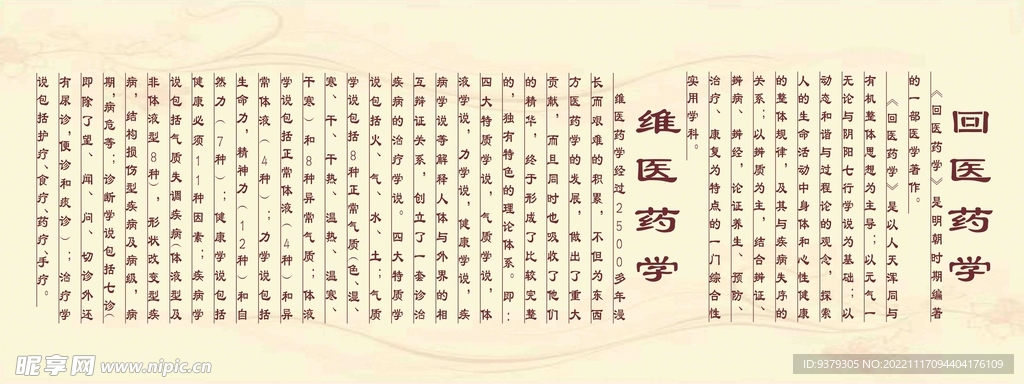 回医药学
《回医药学》是明朝时期编著
的一部医学著作。
《回医药学》是以人天浑同与
有机整体思想为主导；以元气一
无论与阴阳七行学说为基础；以
动态和谐与过程论的观念，探索
人的生命活动中身体和心性健康
的整体规律，及其与疾病失序的
关系；以辨质为主，结合辨证、
辨病、辨经，论证养生、预防、
治疗、康复为特点的一门综合性
实用学科。
维医药学
维医药学经过2500多年漫
长而艰难的积累，不但为东西
方医药学的发展，做出了重大
贡献，而且同时也吸收了他们
的精华，终于形成了比较完整
的，独有特色的理论体系。即：
四大特质学说，气质学说，体
液学说，力学说，健康学说，疾
病学说等解释人体与外界的相
互辩证关系，创立了一套诊治
疾病的治疗学说。四大特质学
说包括火、气、水、土；气质
学说包括8种正常气质（色、湿、
寒、干、干热、温热、温寒、
干寒）和8种异常气质；体液
学说包括正常体液（4种）和异
常体液（4种）；力学说包括
生命力，精神力（12种）和自
然力（7种）；健康学说包括
健康必须11种因素；疾病学
说包括气质失调疾病（体液型及
非体液型8种），形状改变型疾
病，结构损伤型疾病及病级，病
期，病危等；诊断学说包括七诊（
即除了望、闻、问、切诊外还
有尿诊，便诊和痰诊）；治疗学
说包括护疗、食疗、药疗、手疗。
昵享网 www.nipic.cn
ID:9379305 NO:20221117094404176109